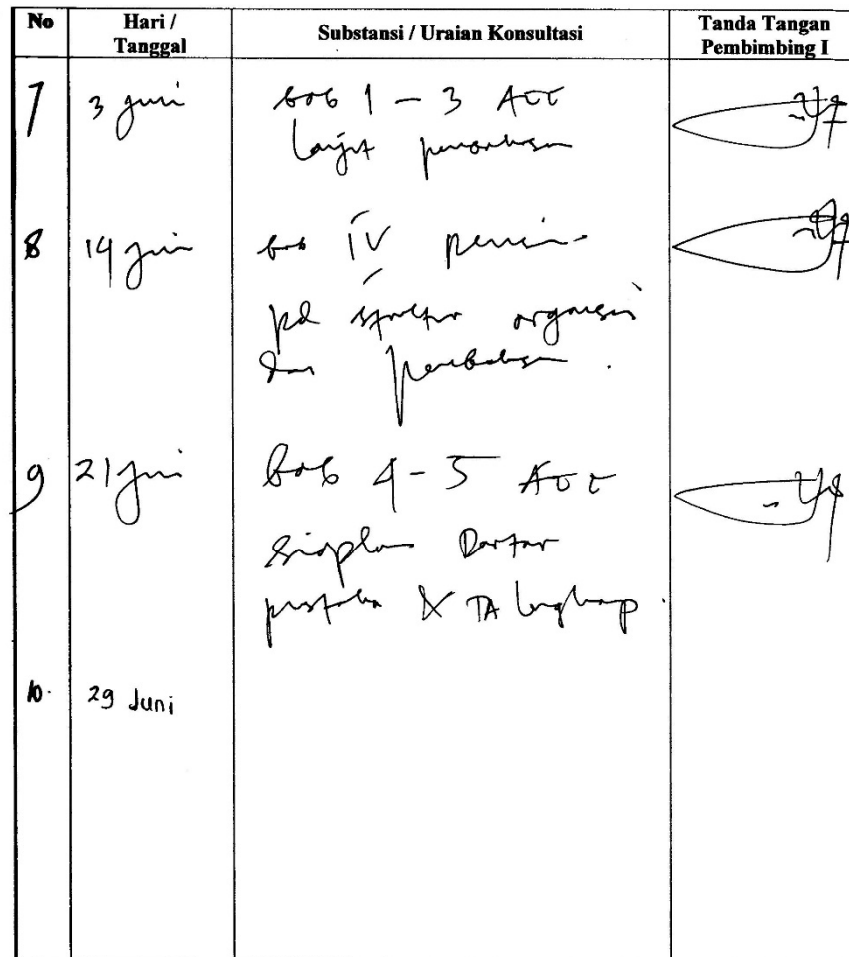 No Hari / Tanggal Substansi / Uraian Konsultasi Tanda Tangan Pembimbing I
7 3 juni bab 1 - 3 ACC
lanjut
8 14 juni bab IV
pd struktur organisasi
dan pembahasan.
9 21 juni bab 4 - 5 ACC
siapkan Daftar
pustaka & TA lengkap.
10. 29 Juni